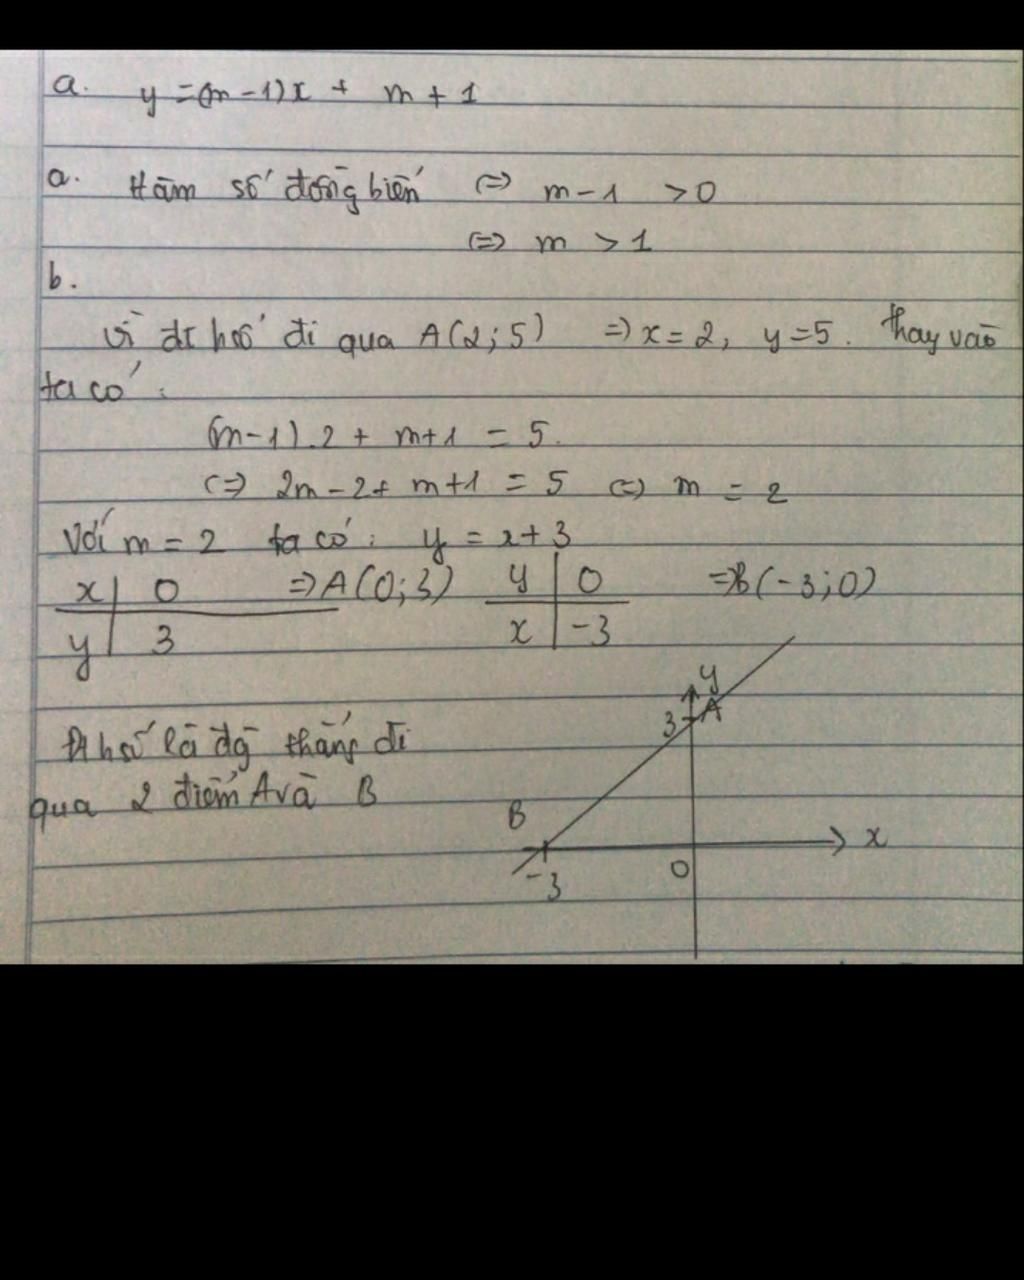 a. y = (m - 1)x + m + 1
a. Hàm số đồng biến <=> m - 1 > 0
<=> m > 1
b.
Vì đt hsố đi qua A(2; 5) => x = 2, y = 5. Thay vào
ta có:
(m-1).2 + m+1 = 5.
<=> 2m - 2 + m+1 = 5 <=> m = 2
Với m = 2 ta có: y = x + 3
x | 0 => A(0; 3) y | 0 => B(-3; 0)
y | 3 x | -3
y
3 A
Đt hsố là đg thẳng đi
qua 2 điểm A và B
B
x
-3 0